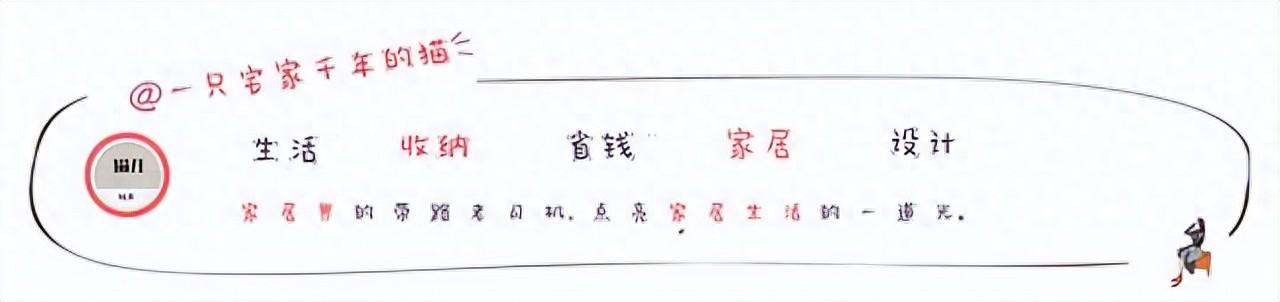 @一只宅家千年的猫
生活 收纳 省钱 家居 设计
猫儿
家居界的带路老司机，点亮家居生活的一道光。